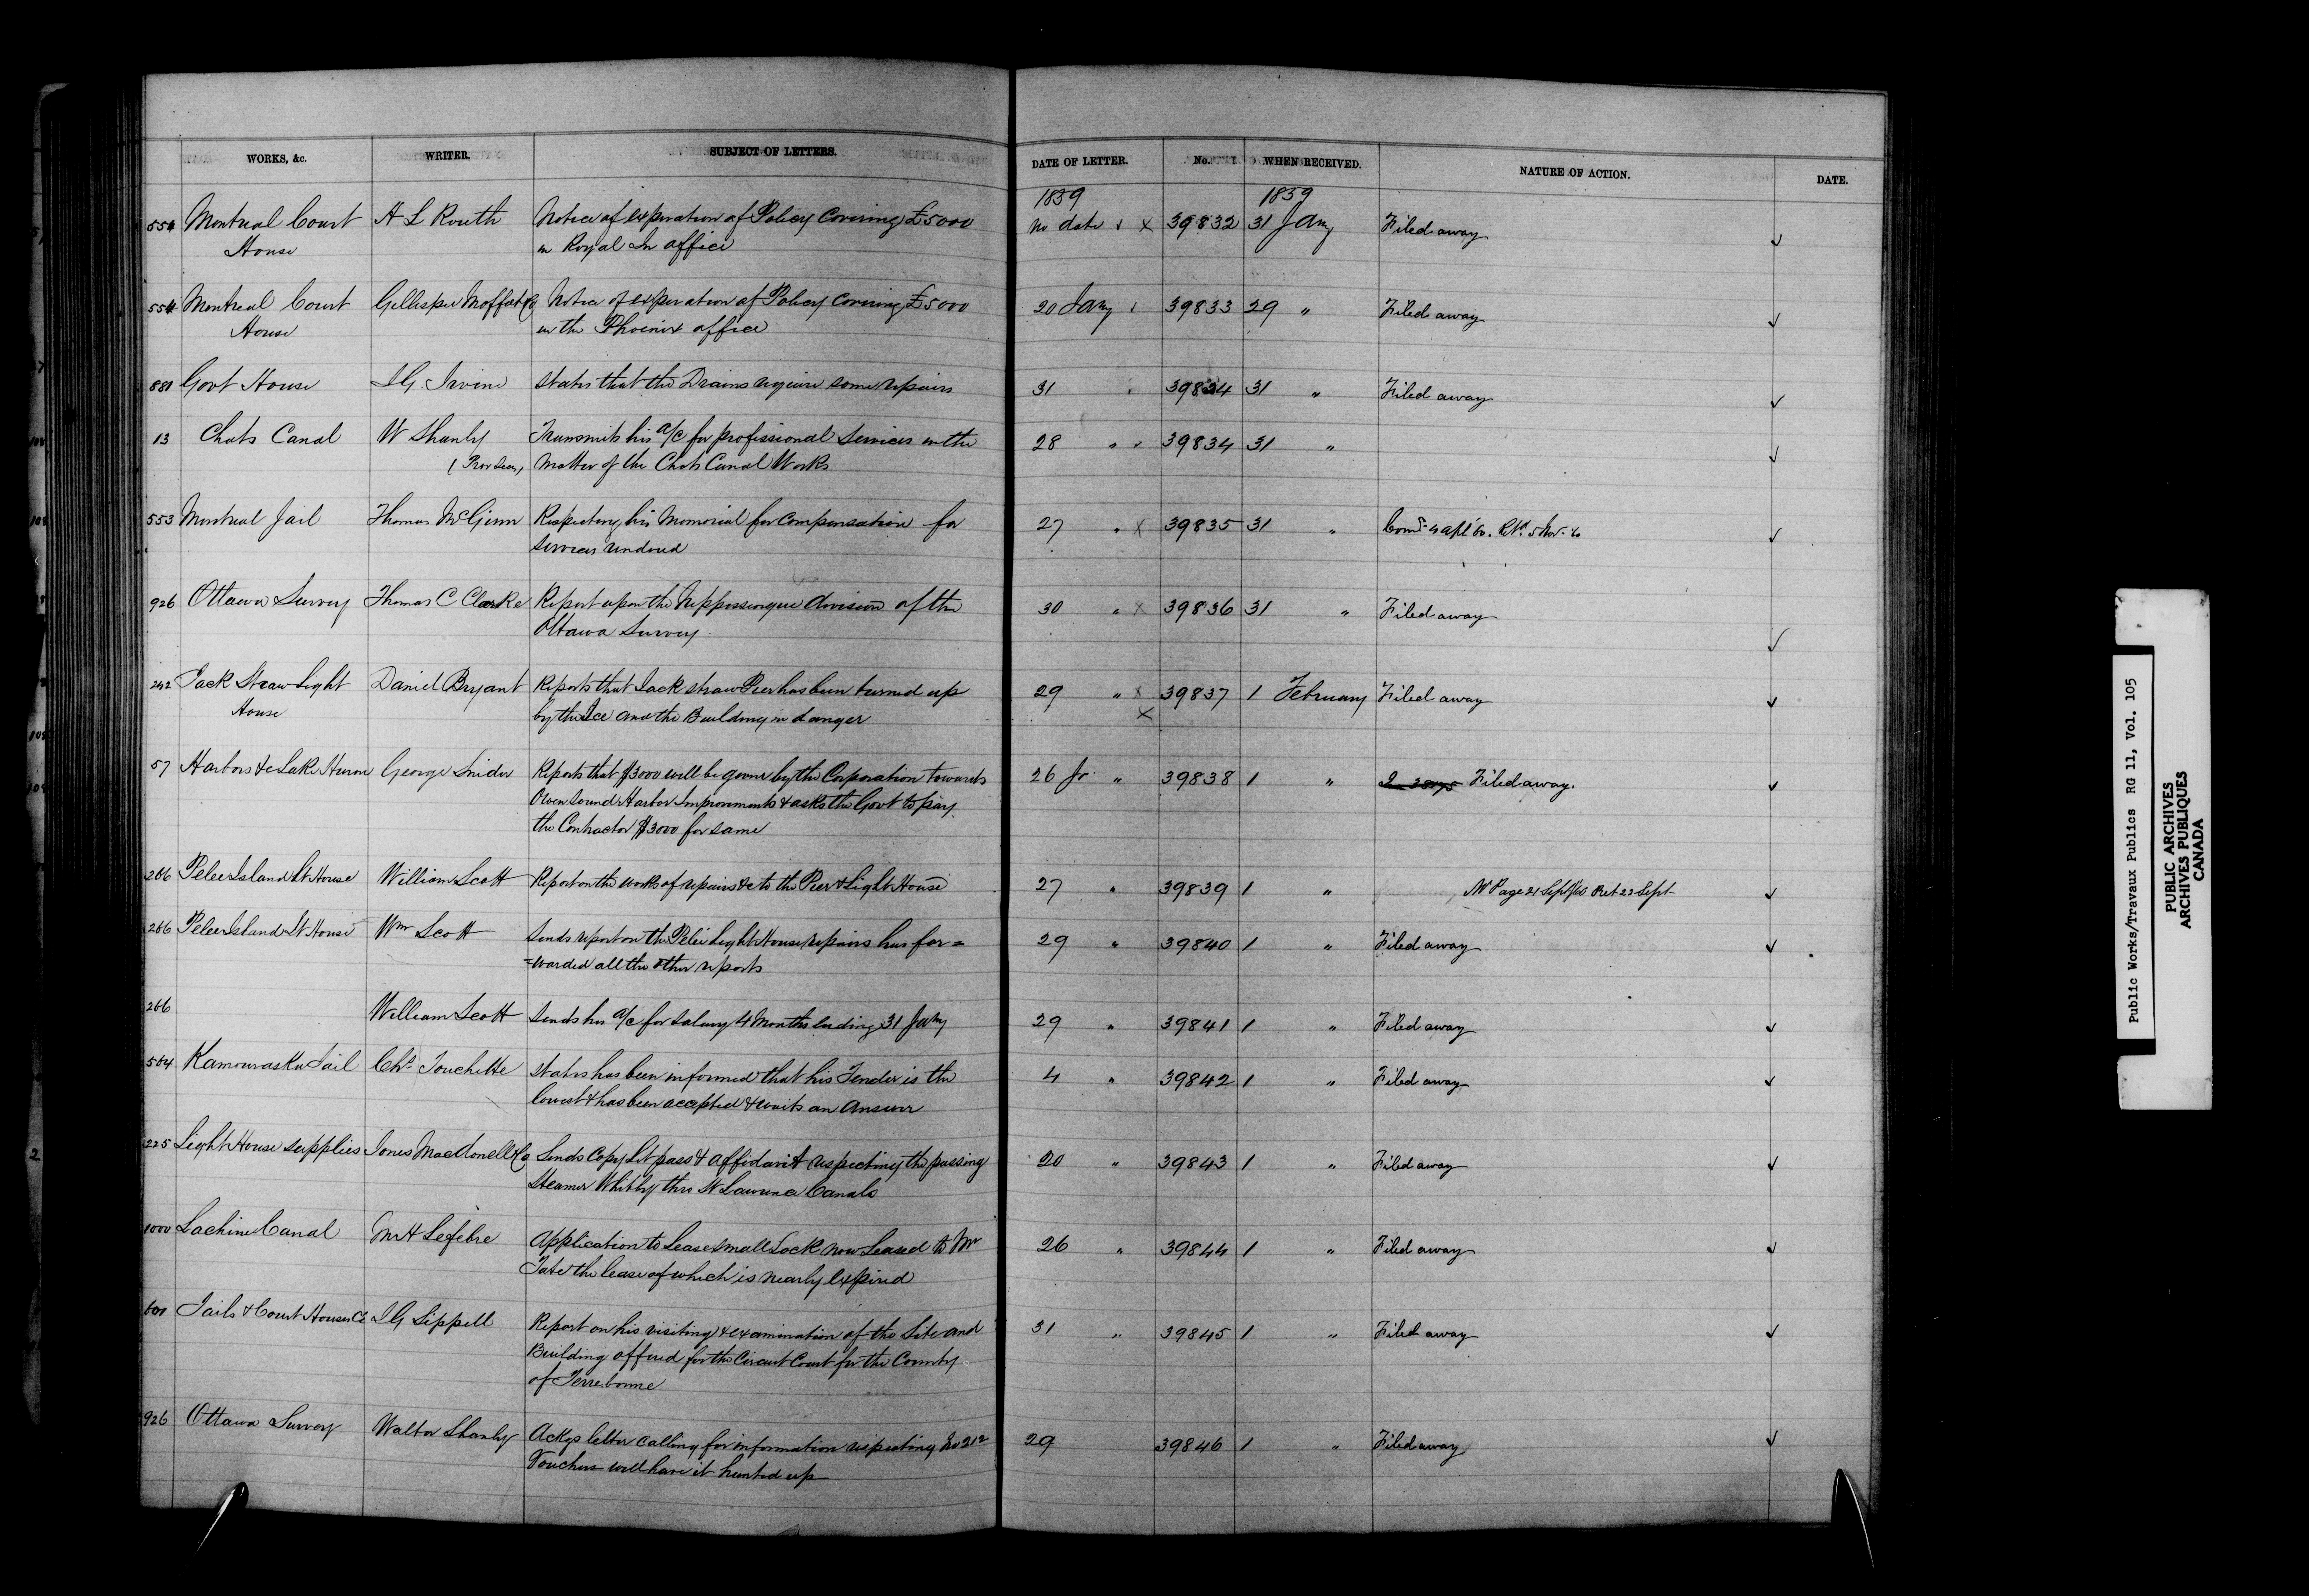 WORKS, &c. WRITER. SUBJECT OF LETTERS. DATE OF LETTER. No. WHEN RECEIVED. NATURE OF ACTION. DATE.
1859 1859
554 Montreal Court H L Routh Notice of expiration of Policy Covering £5000 no date x 39832 31 Jany Filed away ✓
House in Royal In office
554 Montreal Court Gillespie Moffat & Co Notice of expiration of Policy Covering £5000 20 Jany 39833 29 " Filed away ✓
House in the Phoenix office
881 Govt House J G. Irvine States that the Drains require some repairs 31 39834 31 " Filed away ✓
13 Chats Canal W Shanly Transmits his a/c for professional Services in the 28 " 39834 31 " ✓
Matter of the Chats Canal Works
553 Montreal Jail Thomas McGinn Respecting his Memorial for Compensation for 27 " x 39835 31 " ✓
Services rendered
926 Ottawa Survey Thomas C Clarke Report upon the Nippissingue division of the 30 " x 39836 31 " Filed away ✓
Ottawa Survey
242 Jack Straw Light Daniel Bryant Reports that Jack straw Pier has been turned up 29 " x 39837 1 February Filed away ✓
House by the Ice and the Building in danger x
57 Harbors &c Lake Huron George Snider Reports that $3000 will be given by the Corporation towards 26 Jr " 39838 1 " Filed away. ✓
Owen Sound Harbor Improvements & asks the Govt to pay
the Contractor $3000 for same
266 Pelee Island Lt House William Scott Report on the works of repairs &c to the Pier & Light House 27 " 39839 1 " Mr Page 21 Sept/60 Ret 23 Sept ✓
266 Pelee Island Lt House Wm Scott Sends report on the Pelee Light House repairs has for= 29 " 39840 1 " Filed away ✓
=warded all the other reports
266 William Scott Sends his a/c for Salary 4 Months ending 31 Jany 29 " 39841 1 " Filed away ✓
564 Kamouraska Jail Chs Touchette States has been informed that his Tender is the 4 " 39842 1 " Filed away ✓
lowest & has been accepted & waits an Answer
225 Light House supplies Jones MacDonell & Co Sends Copy Let pass & affidavit respecting the passing 20 " 39843 1 " Filed away ✓
Steamer Whitby thro St Lawrence Canals
1000 Lachine Canal Lefebre Application to Lease small Lock now Leased to Mr 26 " 39844 1 " Filed away ✓
Tate the lease of which is nearly expired
601 Jails & Court Houses CE J G Sippell Report on his visiting & examination of the Site and 31 " 39845 1 " Filed away ✓
Building offered for the Circuit Court for the County
of Terrebonne
926 Ottawa Survey Walter Shanly Ackgs letter calling for information respecting No 212 29 39846 1 " Filed away ✓
Vouchers will have it hunted up
Public Works/Travaux Publics RG 11, Vol. 105
PUBLIC ARCHIVES
ARCHIVES PUBLIQUES
CANADA